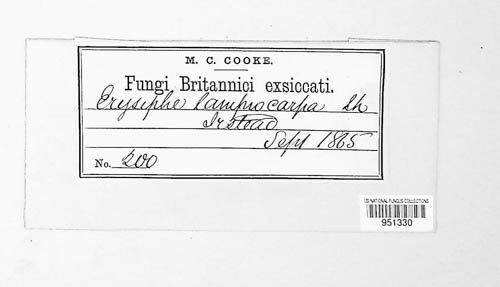 M. C. COOKE.
Fungi Britannici exsiccati.
Erysiphe lamprocarpa Lh
Irstead
Sept 1865
No. 200
US NATIONAL FUNGUS COLLECTIONS
951330